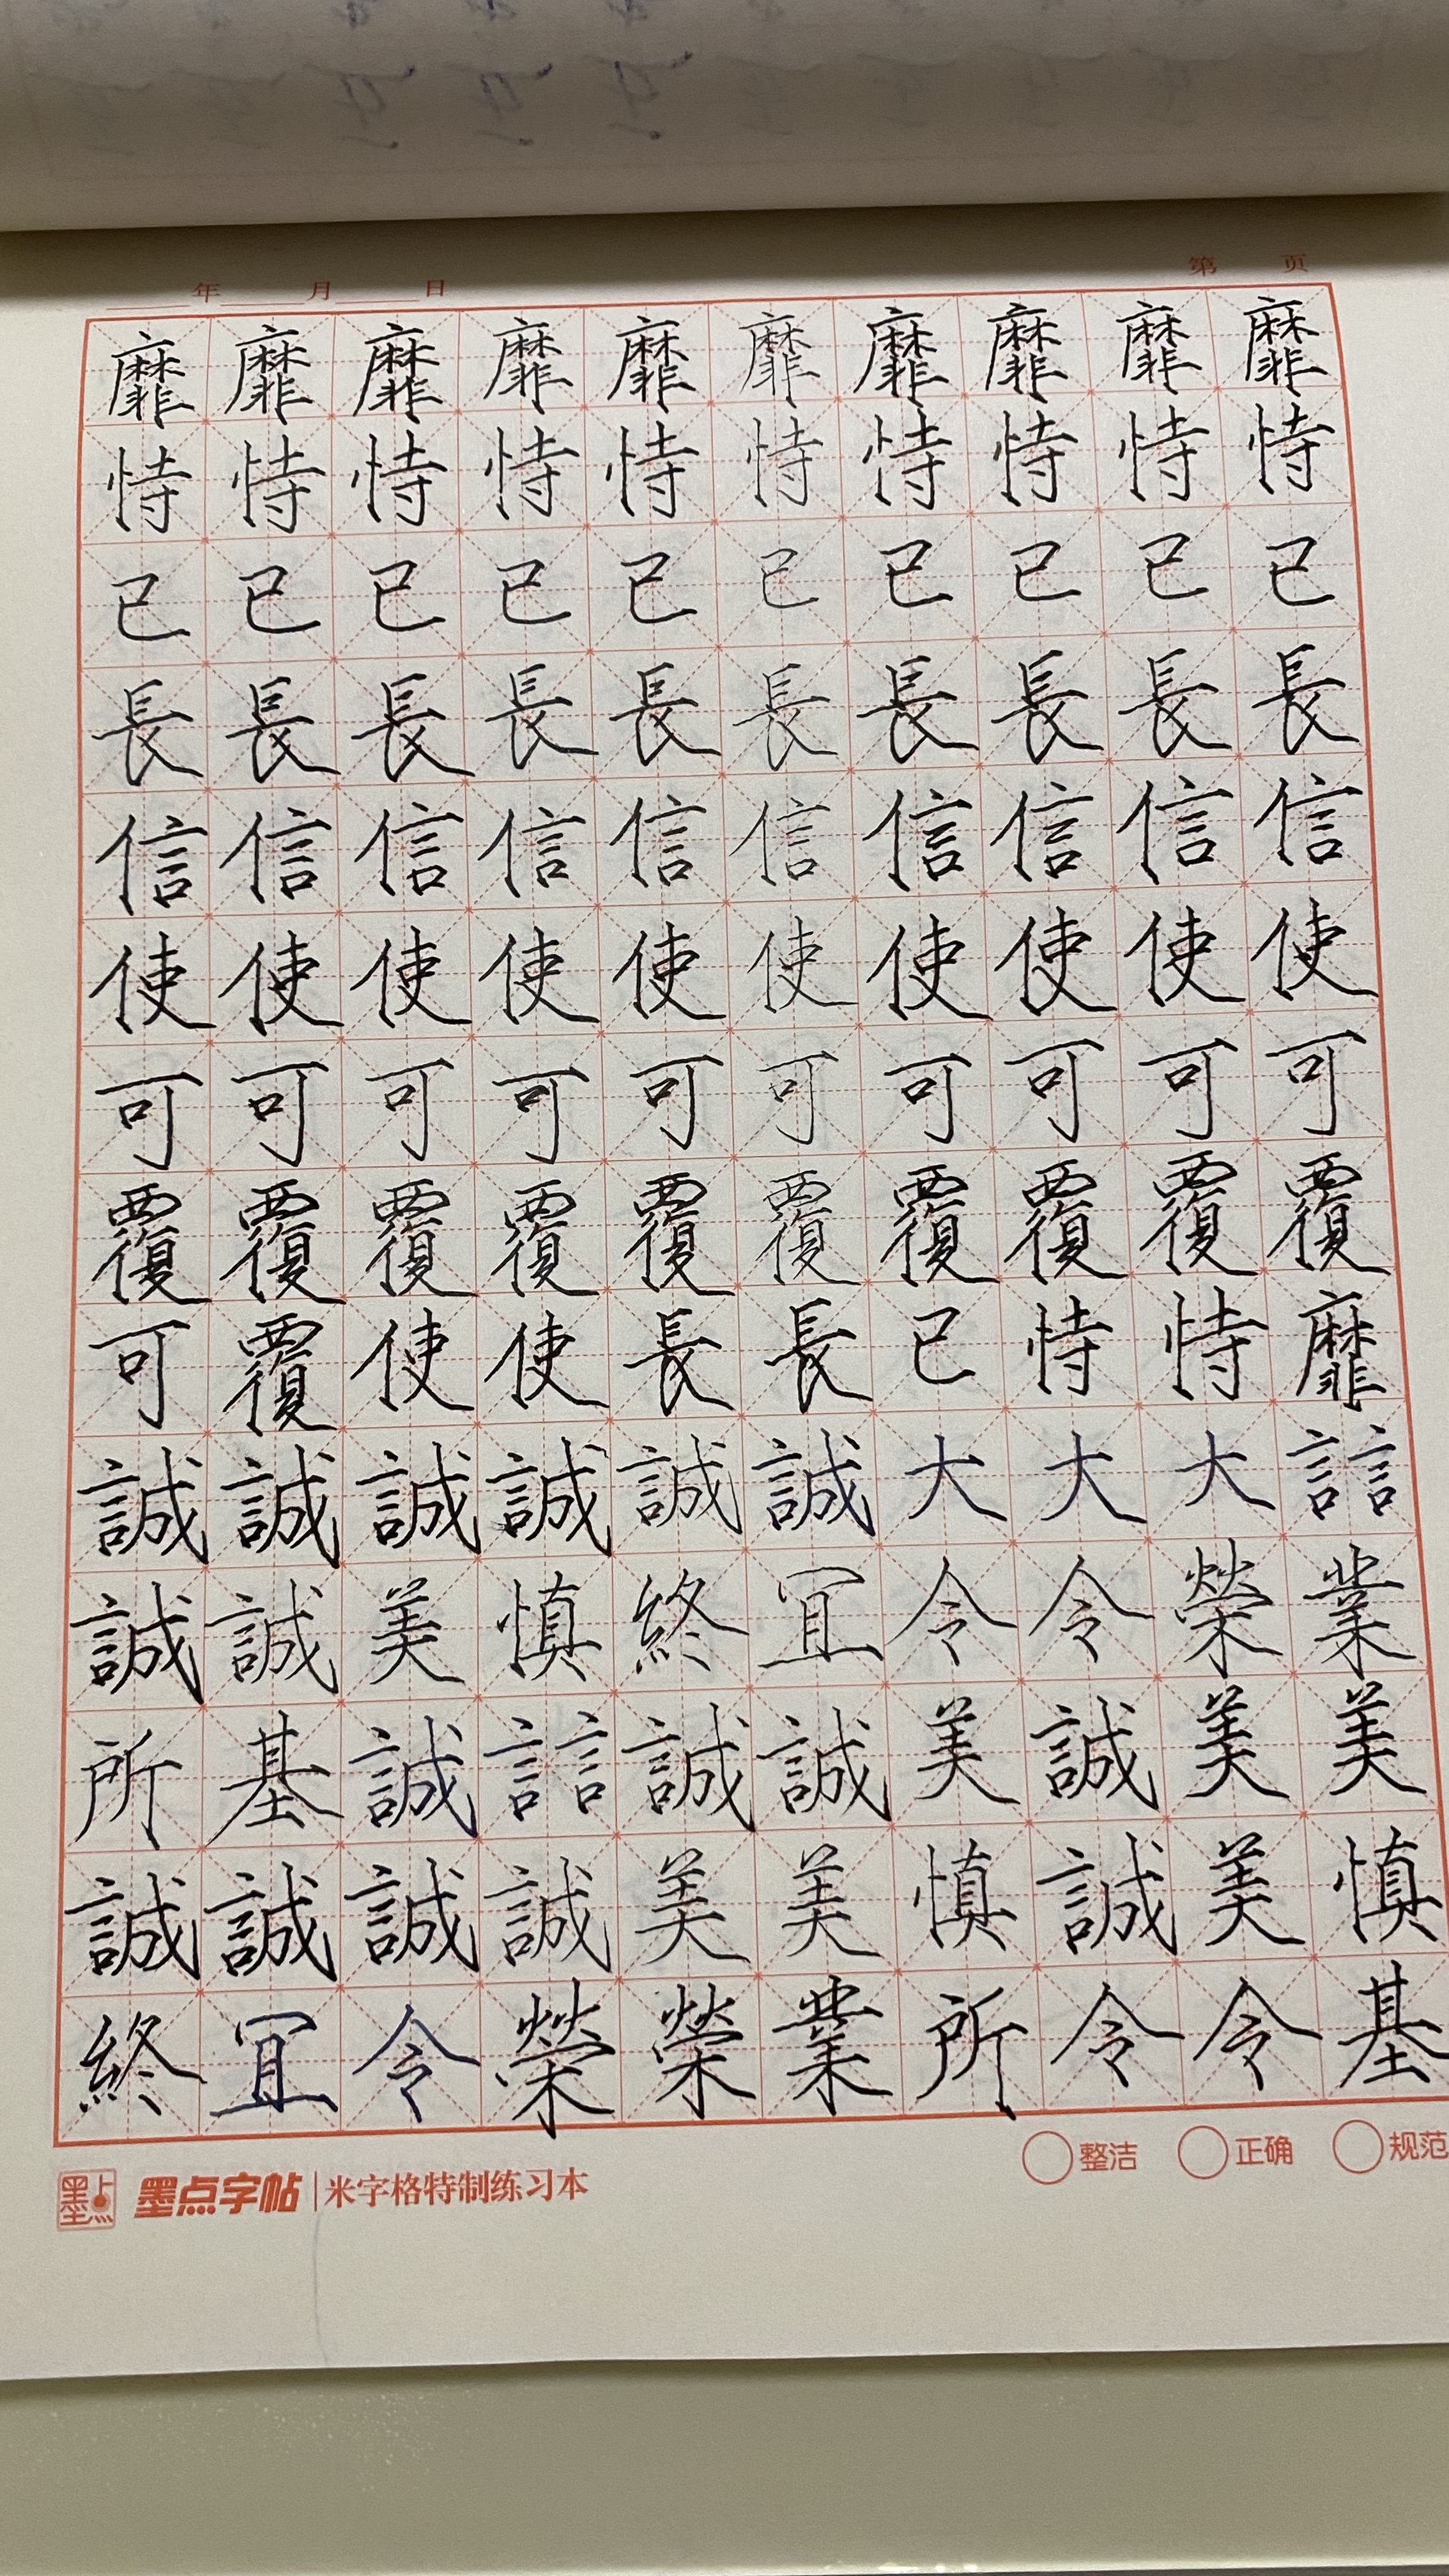 年 月 日 第 页
靡靡靡靡靡靡靡靡靡靡
恃恃恃恃恃恃恃恃恃恃
己己己己己己己己己己
長長長長長長長長長長
信信信信信信信信信信
使使使使使使使使使使
可可可可可可可可可可
覆覆覆覆覆覆覆覆覆覆
可覆使使長長己恃恃靡
誠誠誠誠誠誠大大大言言
誠誠美慎終宜令令榮業
所基誠言言誠誠美誠美美
誠誠誠誠美美慎誠美慎
終宜令榮榮業所令令基
整洁 正确 规范
墨点 墨点字帖 | 米字格特制练习本